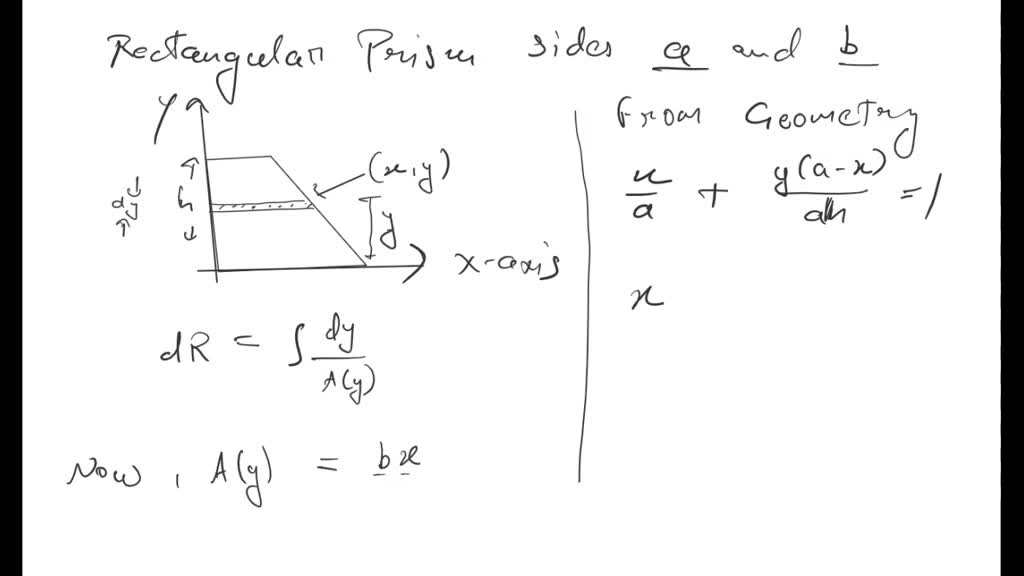 Rectangular Prism sides a and b
Y
(x, y)
dy
h
y
x-axis
dR = ∫ dy / A(y)
Now, A(y) = bx
From Geometry
x/a + y(a-x)/ah = 1
x